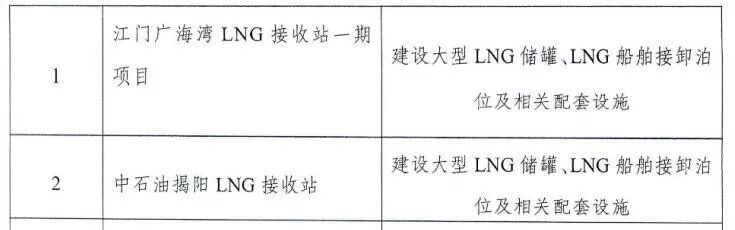 1
江门广海湾 LNG 接收站一期
项目
建设大型 LNG 储罐、LNG 船舶接卸泊
位及相关配套设施
2
中石油揭阳 LNG 接收站
建设大型 LNG 储罐、LNG 船舶接卸泊
位及相关配套设施